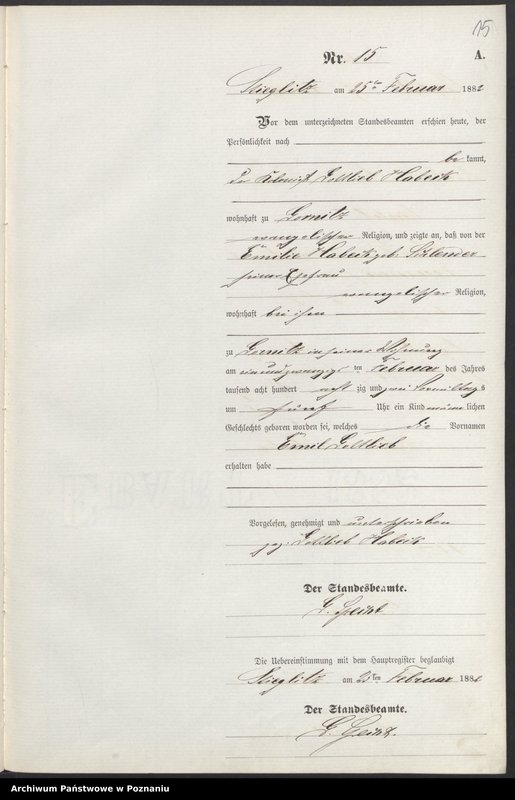 15
Nr. 15
A.
Stieglitz am 25ten Februar 1882
Vor dem unterzeichneten Standesbeamten erschien heute, der
Persönlichkeit nach
be kannt,
der Kolonist Gottlieb Habeck
wohnhaft zu Gornitz
evangelischer Religion, und zeigte an, daß von der
Emilie Habeck geb.
seiner Ehefrau
evangelischer Religion,
wohnhaft bei ihm
zu Gornitz in seiner Wohnung
am einundzwanzigs ten Februar des Jahres
tausend acht hundert acht zig und zwei Vormittags
um fünf Uhr ein Kind männ lichen
Geschlechts geboren worden sei, welches die Vornamen
Emil Gottlieb
erhalten habe
Vorgelesen, genehmigt und unterschrieben
gez. Gottlieb Habeck
Der Standesbeamte.
Die Uebereinstimmung mit dem Hauptregister beglaubigt
Stieglitz am 25ten Februar 1882
Der Standesbeamte.
Archiwum Państwowe w Poznaniu